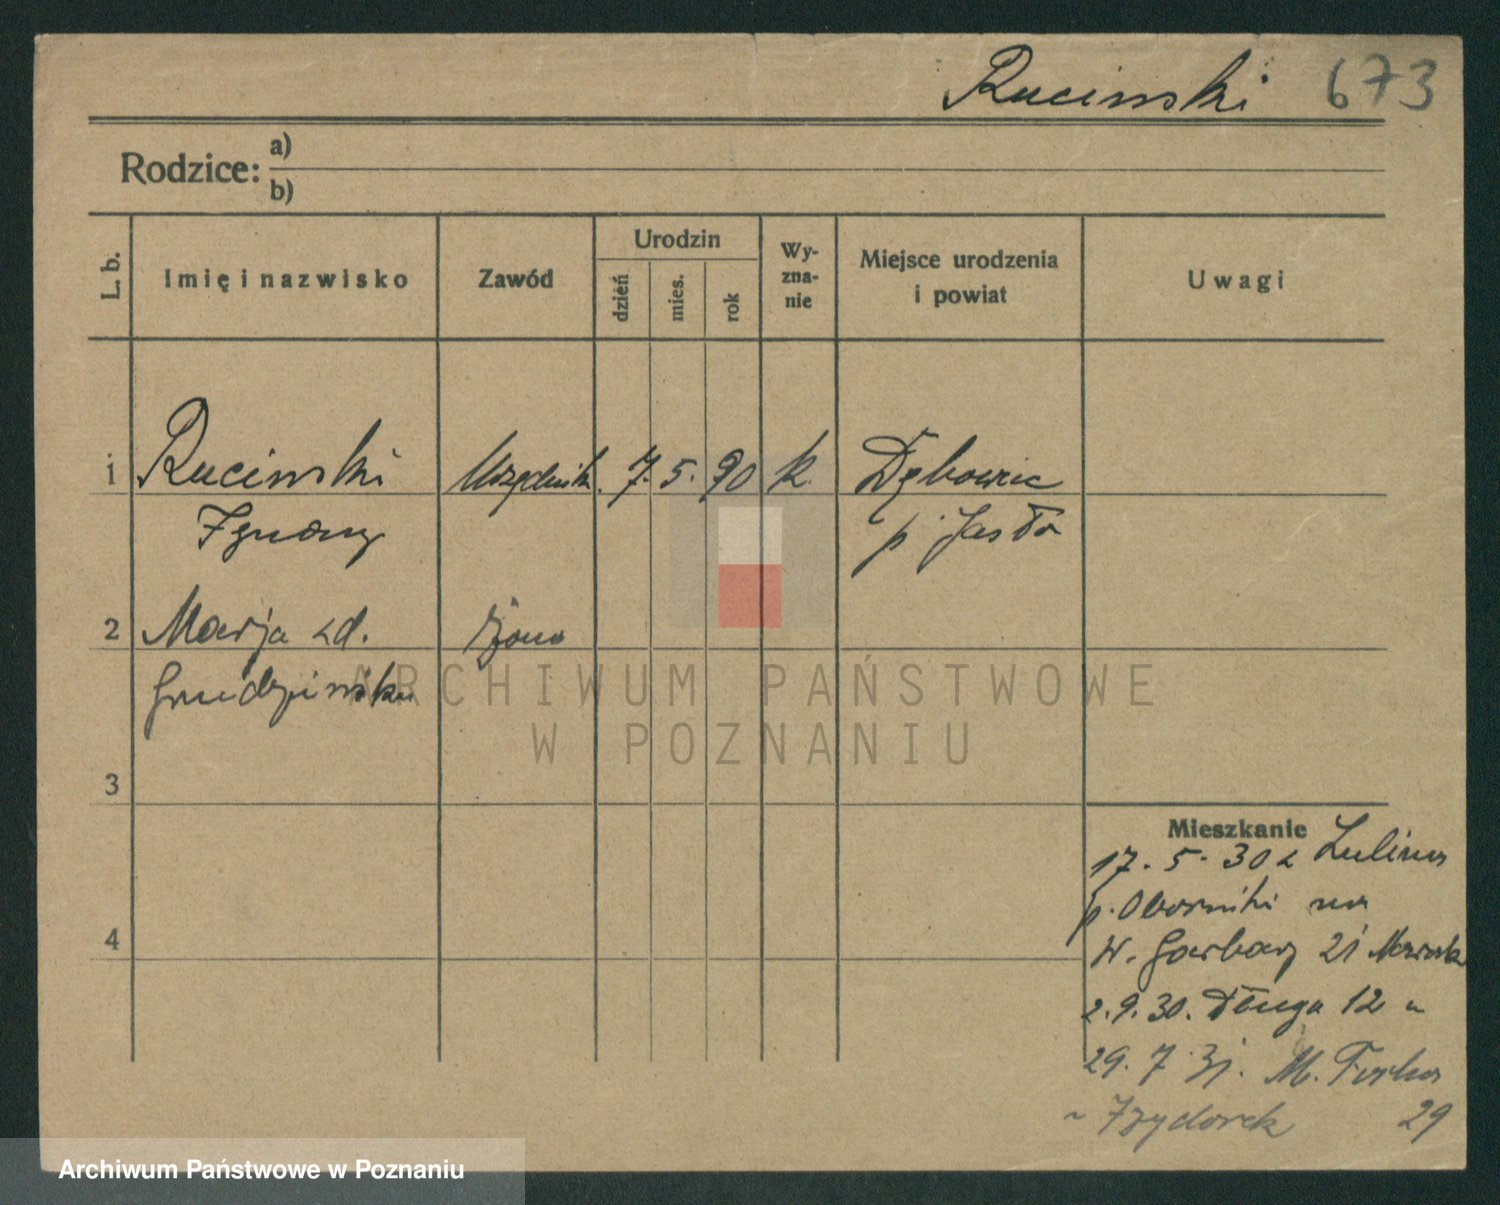 Rucinski 673
Rodzice: a)
b)
L. b. Imię i nazwisko Zawód Urodzin dzień mies. rok Wy-zna-nie Miejsce urodzenia i powiat Uwagi
1 Rucinski Urzędnik. 7. 5. 90 k. Dębowiec
Ignacy p. Jasło
2 Marja zd. żona
Grudzinska
ARCHIWUM PAŃSTWOWE
W POZNANIU
3
Mieszkanie
17. 5. 30 z
p. Oborniki na
4
W. Garbary 21
2. 9. 30. Długa 12 u
29. 7. 31. M.
Izydorek 29
Archiwum Państwowe w Poznaniu